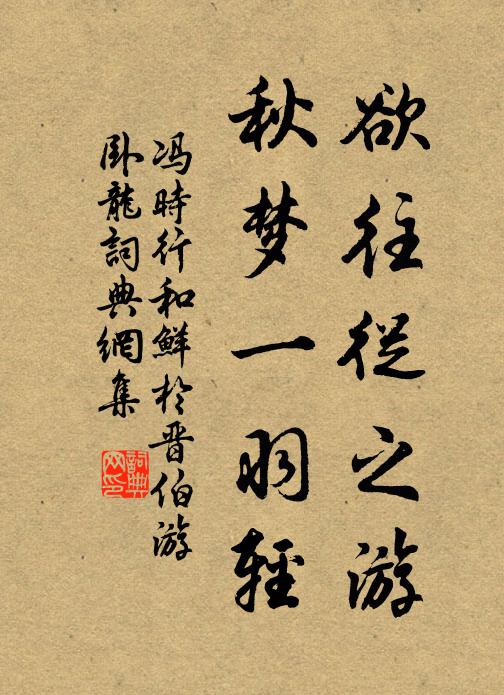 欲往從之游
秋梦一羽輕
冯時行和鮮於晋伯游
卧龍詞典網集
詞典
网印